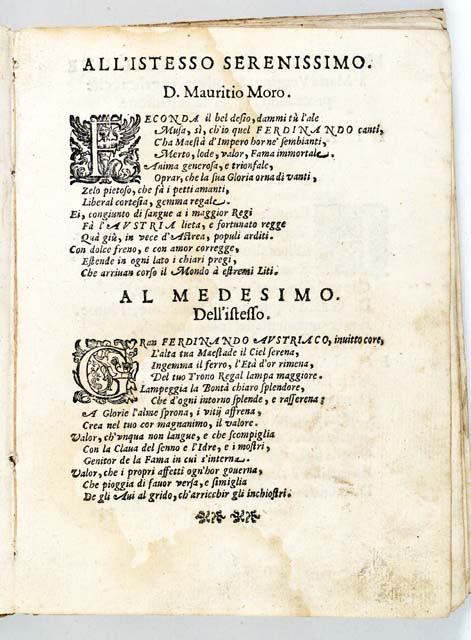 ALL'ISTESSO SERENISSIMO.
D. Mauritio Moro.
FECONDA il bel desio, dammi tù l'ale
Musa, sì, ch'io quel FERDINANDO canti,
Cha Maestà d'Impero hor nè sembianti,
Merto, lode, valor, Fama immortale.
Anima generosa, e trionfale,
Oprar, che la sua Gloria orna di vanti,
Zelo pietoso, che fà i petti amanti,
Liberal cortesia, gemma regale.
Ei, congiunto di sangue a i maggior Regi
Fà l'AVSTRIA lieta, e fortunato regge
Quà giù, in vece d'Astrea, populi arditi.
Con dolce freno, e con amor corregge,
Estende in ogni lato i chiari pregi,
Che arriuan corso il Mondo à estremi Liti.
AL MEDESIMO.
Dell'istesso.
GRan FERDINANDO AVSTRIACO, inuitto core,
L'alta tua Maestade il Ciel serena,
Ingemma il ferro, l'Età d'or rimena,
Del tuo Trono Regal lampa maggiore.
Lampeggia la Bontà chiaro splendore,
Che d'ogni intorno splende, e rasserena;
A Glorie l'alme sprona, i vitij affrena,
Crea nel tuo cor magnanimo, il valore.
Valor, ch'vnqua non langue, e che scompiglia
Con la Claua del senno e l'Idre, e i mostri,
Genitor de la Fama in cui s'interna.
Valor, che i propri affetti ogn'hor gouerna,
Che pioggia di fauor versa, e simiglia
De gli Aui al grido, ch'arricchir gli inchiostri.